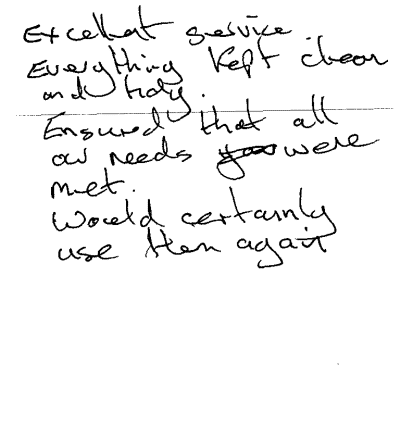 Excellent service.
Everything kept clean
and tidy.
Ensured that all
our needs were
met.
Would certainly
use them again